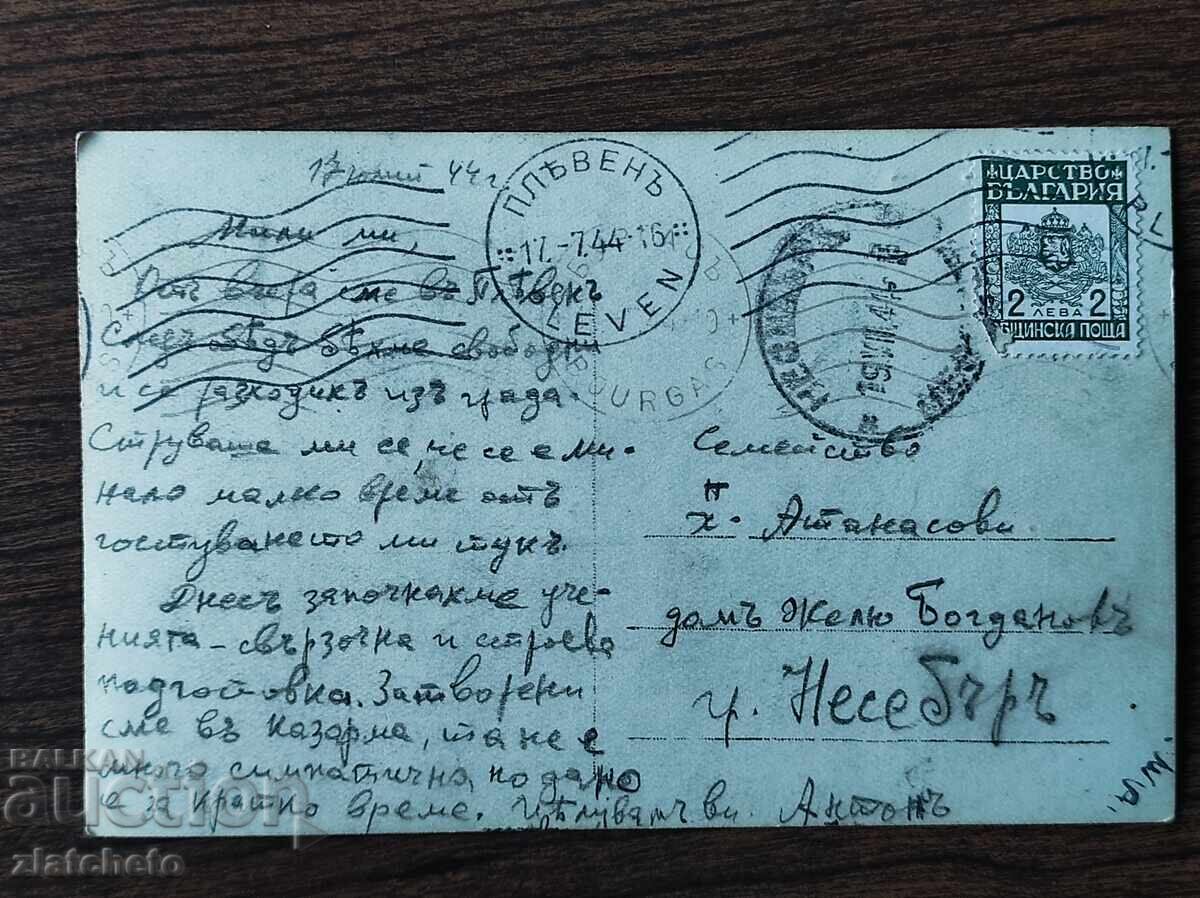 17 юлий 44 г.
Мили ми,
вече сме въ Плѣвенъ
Следъ обѣдъ бѣхме свободни
и се разходихъ изъ града.
Струваше ми се, че се е ми-
нало малко време отъ
гостуването ми тукъ.
Днесъ започнахме уче-
нията – свързочна и строева
подготовка. Затворени
сме въ казарма, та не е
много симпатично, но дано
е за кратко време. Цѣлувамъ ви. Антонъ
ПЛѢВЕНЪ
17.-7.44-16
PLEVEN
BOURGAS
19.VII.44
ЦАРСТВО
БЪЛГАРИЯ
2 ЛЕВА 2
ОБЩИНСКА ПОЩА
Семейство
х. Атанасови
домъ Желю Богдановъ
гр. Несебъръ
BALKAN
auction
zlatcheto